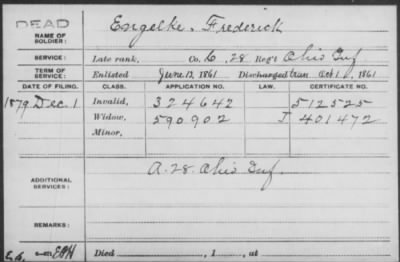 DEAD
NAME OF SOLDIER: Engelke, Frederick
SERVICE: Late rank, Co. C, 28 Reg't Ohio Inf
TERM OF SERVICE: Enlisted June 13, 1861 Discharged tran. Oct 1, 1861
DATE OF FILING. CLASS. APPLICATION NO. LAW. CERTIFICATE NO.
1879 Dec. 1 Invalid, 324642 512525
Widow, 590902 J 401472
Minor,
ADDITIONAL SERVICES: A. 28. Ohio Inf.
REMARKS:
EAH Died , 1 , at